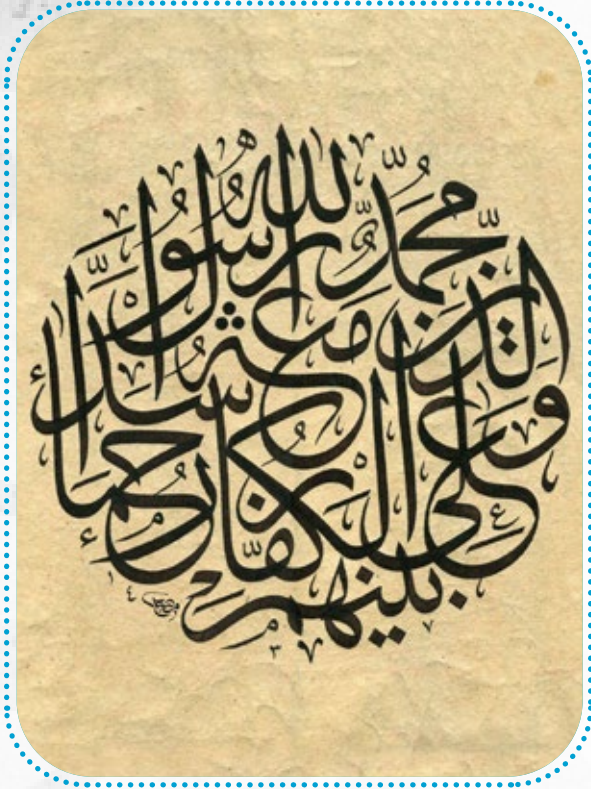 محمد رسول الله
والذين معه أشداء
على الكفار رحماء
بينهم
١٤٣٧